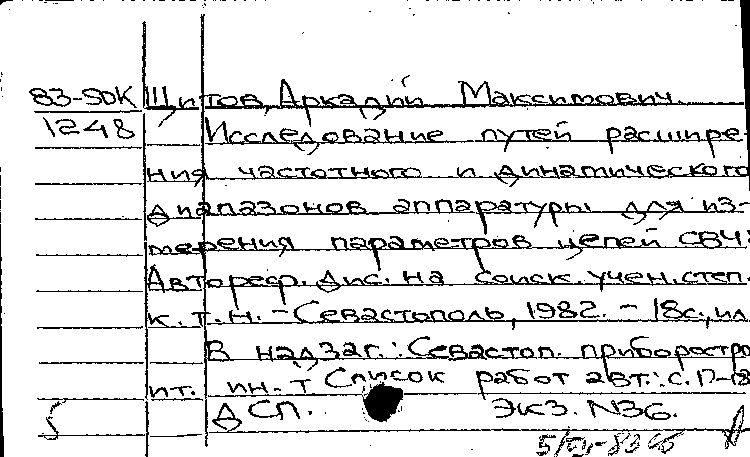 83-5ДК Щитов, Аркадий Максимович.
1248 Исследование путей расшире-
ния частотного и динамического
диапазонов аппаратуры для из-
мерения параметров цепей СВЧ:
Автореф. дис. на соиск. учен. степ.
к. т. н. - Севастополь, 1982. - 18с., ил
В надзаг.: Севастоп. приборостро
ит. ин. т Список работ авт.: с. 17-18
ДСП. Экз. N36.